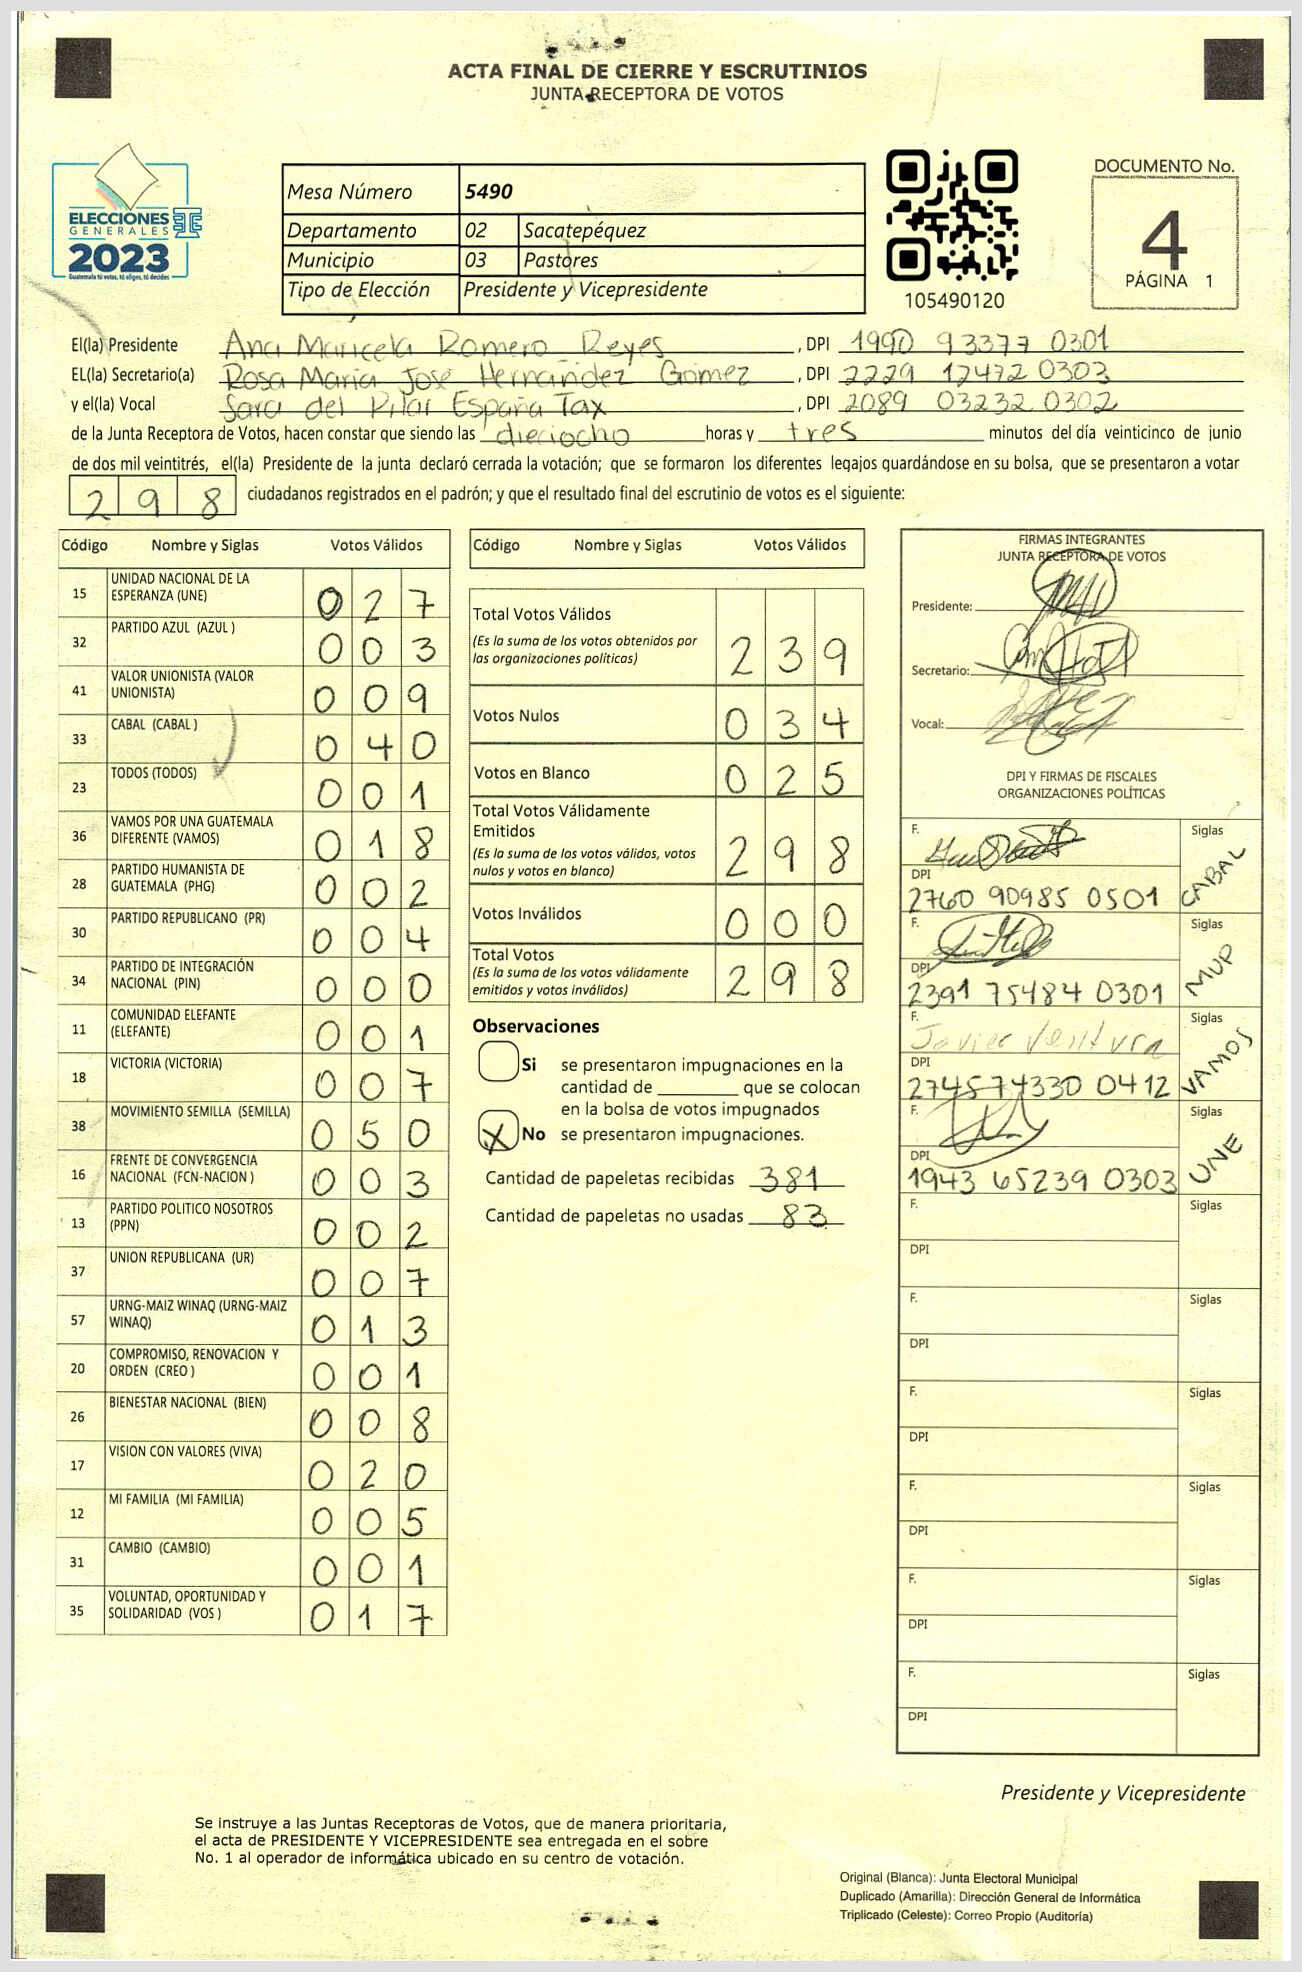 ACTA FINAL DE CIERRE Y ESCRUTINIOS
JUNTA RECEPTORA DE VOTOS
ELECCIONES
GENERALES
2023
Guatemala tú votas, tú eliges, tú decides
Mesa Número 5490
Departamento 02 Sacatepéquez
Municipio 03 Pastores
Tipo de Elección Presidente y Vicepresidente
105490120
DOCUMENTO No.
4
PÁGINA 1
El(la) Presidente Ana Maricela Romero Reyes, DPI 1990 93377 0301
EL(la) Secretario(a) Rosa María José Hernández Gómez, DPI 2229 12472 0303
y el(la) Vocal Sara del Pilar España Tax, DPI 2089 03232 0302
de la Junta Receptora de Votos, hacen constar que siendo las dieciocho horas y tres minutos del día veinticinco de junio
de dos mil veintitrés, el(la) Presidente de la junta declaró cerrada la votación; que se formaron los diferentes legajos guardándose en su bolsa, que se presentaron a votar
298 ciudadanos registrados en el padrón; y que el resultado final del escrutinio de votos es el siguiente:
Código Nombre y Siglas Votos Válidos
15 UNIDAD NACIONAL DE LA ESPERANZA (UNE) 027
32 PARTIDO AZUL (AZUL ) 003
41 VALOR UNIONISTA (VALOR UNIONISTA) 009
33 CABAL (CABAL ) 040
23 TODOS (TODOS) 001
36 VAMOS POR UNA GUATEMALA DIFERENTE (VAMOS) 018
28 PARTIDO HUMANISTA DE GUATEMALA (PHG) 002
30 PARTIDO REPUBLICANO (PR) 004
34 PARTIDO DE INTEGRACIÓN NACIONAL (PIN) 000
11 COMUNIDAD ELEFANTE (ELEFANTE) 001
18 VICTORIA (VICTORIA) 007
38 MOVIMIENTO SEMILLA (SEMILLA) 050
16 FRENTE DE CONVERGENCIA NACIONAL (FCN-NACION ) 003
13 PARTIDO POLITICO NOSOTROS (PPN) 002
37 UNION REPUBLICANA (UR) 007
57 URNG-MAIZ WINAQ (URNG-MAIZ WINAQ) 013
20 COMPROMISO, RENOVACION Y ORDEN (CREO ) 001
26 BIENESTAR NACIONAL (BIEN) 008
17 VISION CON VALORES (VIVA) 020
12 MI FAMILIA (MI FAMILIA) 005
31 CAMBIO (CAMBIO) 001
35 VOLUNTAD, OPORTUNIDAD Y SOLIDARIDAD (VOS ) 017
Código Nombre y Siglas Votos Válidos
Total Votos Válidos 239
(Es la suma de los votos obtenidos por
las organizaciones políticas)
Votos Nulos 034
Votos en Blanco 025
Total Votos Válidamente
Emitidos 298
(Es la suma de los votos válidos, votos
nulos y votos en blanco)
Votos Inválidos 000
Total Votos 298
(Es la suma de los votos válidamente
emitidos y votos inválidos)
Observaciones
Si se presentaron impugnaciones en la
cantidad de ________ que se colocan
en la bolsa de votos impugnados
X No se presentaron impugnaciones.
Cantidad de papeletas recibidas 381
Cantidad de papeletas no usadas 83
FIRMAS INTEGRANTES
JUNTA RECEPTORA DE VOTOS
Presidente:
Secretario:
Vocal:
DPI Y FIRMAS DE FISCALES
ORGANIZACIONES POLÍTICAS
F. Siglas CABAL
DPI
2760 90985 0501
F. Siglas MUP
DPI
2391 75484 0301
F. Javier Ventura Siglas VAMOS
DPI
2745 74330 0412
F. Siglas UNE
DPI
1943 65239 0303
F. Siglas
DPI
F. Siglas
DPI
F. Siglas
DPI
F. Siglas
DPI
F. Siglas
DPI
F. Siglas
DPI
Presidente y Vicepresidente
Se instruye a las Juntas Receptoras de Votos, que de manera prioritaria,
el acta de PRESIDENTE Y VICEPRESIDENTE sea entregada en el sobre
No. 1 al operador de informática ubicado en su centro de votación.
Original (Blanca): Junta Electoral Municipal
Duplicado (Amarilla): Dirección General de Informática
Triplicado (Celeste): Correo Propio (Auditoría)